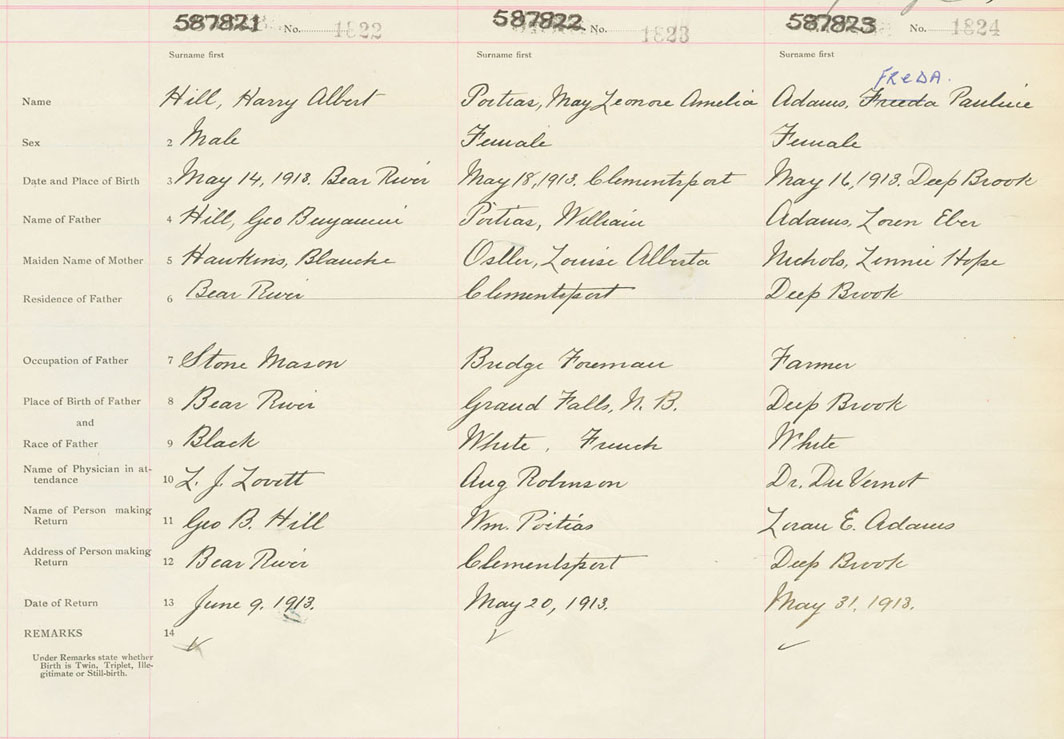 587821 No. 1822 587822 No. 1823 587823 No. 1824
Surname first Surname first Surname first
FReDA.
Name Hill, Harry Albert Poitras, May Leonore Amelia Adams, Freeda Pauline
Sex 2 Male Female Female
Date and Place of Birth 3 May 14, 1913. Bear River May 18, 1913. Clementsport May 16, 1913. Deep Brook
Name of Father 4 Hill, Geo Benjamin Poitras, William Adams, Loren Eber
Maiden Name of Mother 5 Hawkins, Blanche Osller, Louise Alberta Nichols, Linnie Hope
Residence of Father 6 Bear River Clementsport Deep Brook
Occupation of Father 7 Stone Mason Bridge Foreman Farmer
Place of Birth of Father 8 Bear River Grand Falls, N. B. Deep Brook
and
Race of Father 9 Black White, French White
Name of Physician in at-
tendance 10 L. J. Lovitt Aug Robinson Dr. DuVernot
Name of Person making
Return 11 Geo B. Hill Wm. Poitias Loran E. Adams
Address of Person making
Return 12 Bear River Clementsport Deep Brook
Date of Return 13 June 9. 1913. May 20, 1913. May 31, 1913.
REMARKS 14
Under Remarks state whether
Birth is Twin, Triplet, Ille-
gitimate or Still-birth.